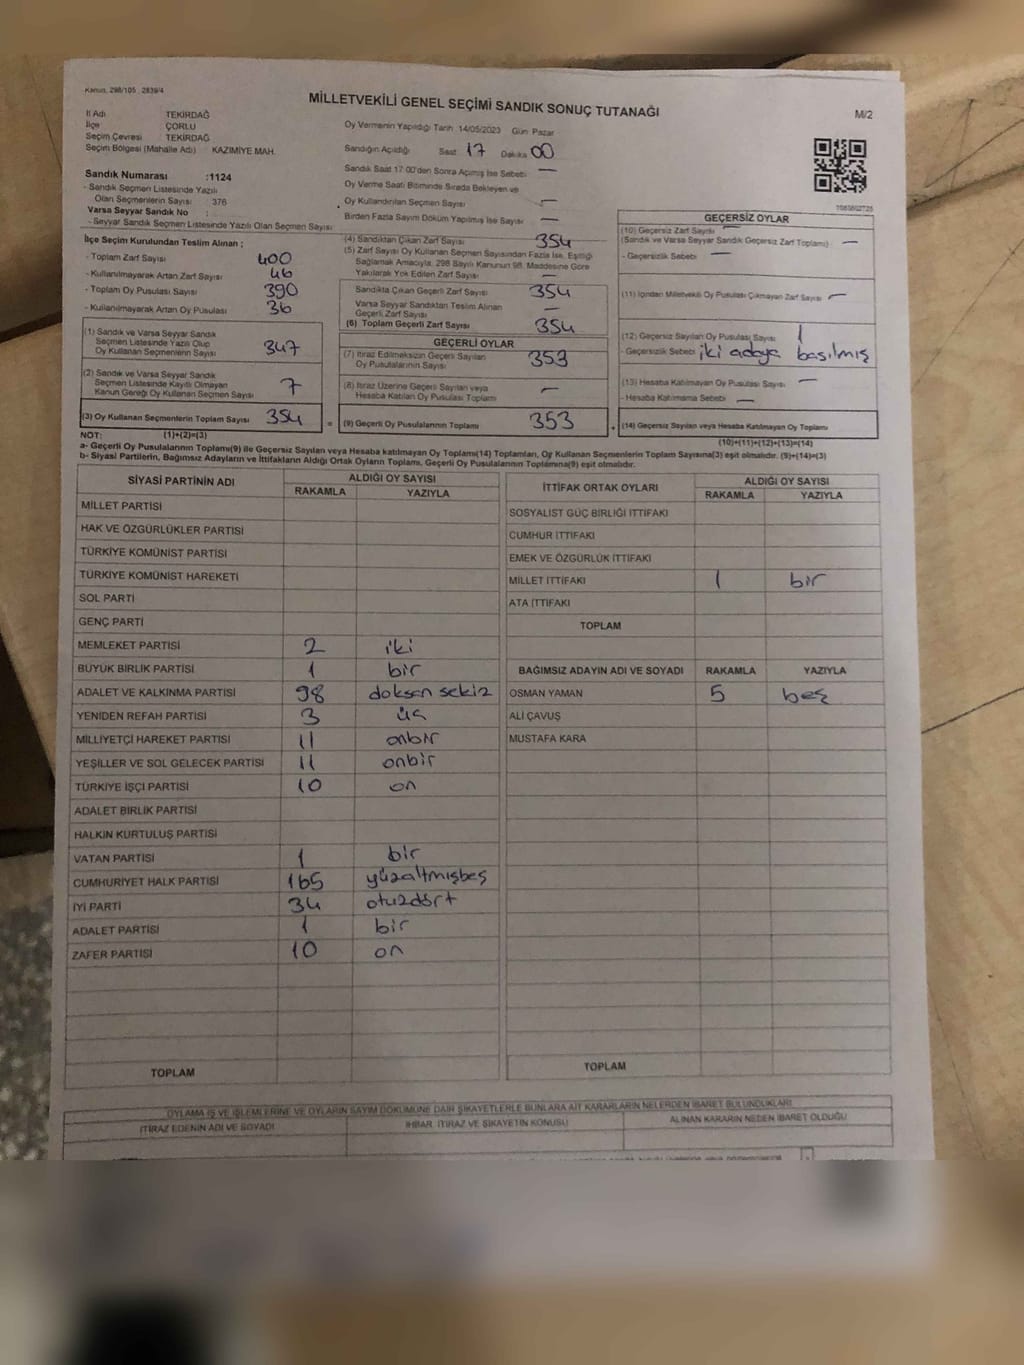 Kanun, 298/105 , 2839/4
MİLLETVEKİLİ GENEL SEÇİMİ SANDIK SONUÇ TUTANAĞI
M/2
İl Adı TEKİRDAĞ
İlçe ÇORLU
Seçim Çevresi TEKİRDAĞ
Seçim Bölgesi (Mahalle Adı) KAZIMİYE MAH.
Sandık Numarası :1124
- Sandık Seçmen Listesinde Yazılı
Olan Seçmenlerin Sayısı 376
Varsa Seyyar Sandık No :
- Seyyar Sandık Seçmen Listesinde Yazılı Olan Seçmen Sayısı
Oy Vermenin Yapıldığı Tarih 14/05/2023 Gün Pazar
Sandığın Açıldığı Saat 17 Dakika 00
Sandık Saat 17:00'den Sonra Açılmış İse Sebebi —
Oy Verme Saati Bitiminde Sırada Bekleyen ve
Oy Kullandırılan Seçmen Sayısı —
Birden Fazla Sayım Döküm Yapılmış İse Sayısı —
İlçe Seçim Kurulundan Teslim Alınan ;
- Toplam Zarf Sayısı 400
- Kullanılmayarak Artan Zarf Sayısı 46
- Toplam Oy Pusulası Sayısı 390
- Kullanılmayarak Artan Oy Pusulası 36
(1) Sandık ve Varsa Seyyar Sandık
Seçmen Listesinde Yazılı Olup
Oy Kullanan Seçmenlerin Sayısı 347
(2) Sandık ve Varsa Seyyar Sandık
Seçmen Listesinde Kayıtlı Olmayan
Kanun Gereği Oy Kullanan Seçmen Sayısı 7
(3) Oy Kullanan Seçmenlerin Toplam Sayısı 354
(4) Sandıktan Çıkan Zarf Sayısı 354
(5) Zarf Sayısı Oy Kullanan Seçmen Sayısından Fazla İse, Eşitliği
Sağlamak Amacıyla, 298 Sayılı Kanunun 98. Maddesine Göre
Yakılarak Yok Edilen Zarf Sayısı —
Sandıkta Çıkan Geçerli Zarf Sayısı 354
Varsa Seyyar Sandıktan Teslim Alınan
Geçerli Zarf Sayısı —
(6) Toplam Geçerli Zarf Sayısı 354
GEÇERLİ OYLAR
(7) İtiraz Edilmeksizin Geçerli Sayılan
Oy Pusulalarının Sayısı 353
(8) İtiraz Üzerine Geçerli Sayılan veya
Hesaba Katılan Oy Pusulası Toplamı —
= (9) Geçerli Oy Pusulalarının Toplamı 353
GEÇERSİZ OYLAR
(10) Geçersiz Zarf Sayısı —
(Sandık ve Varsa Seyyar Sandık Geçersiz Zarf Toplamı) —
- Geçersizlik Sebebi —
(11) İçinden Milletvekili Oy Pusulası Çıkmayan Zarf Sayısı —
(12) Geçersiz Sayılan Oy Pusulası Sayısı 1
- Geçersizlik Sebebi iki adaya basılmış
(13) Hesaba Katılmayan Oy Pusulası Sayısı —
- Hesaba Katılmama Sebebi —
+ (14) Geçersiz Sayılan veya Hesaba Katılmayan Oy Toplamı
NOT: (1)+(2)=(3)
(10)+(11)+(12)+(13)=(14)
a- Geçerli Oy Pusulalarının Toplamı(9) ile Geçersiz Sayılan veya Hesaba katılmayan Oy Toplamı(14) Toplamları, Oy Kullanan Seçmenlerin Toplam Sayısına(3) eşit olmalıdır. (9)+(14)=(3)
b- Siyasi Partilerin, Bağımsız Adayların ve İttifakların Aldığı Ortak Oyların Toplamı, Geçerli Oy Pusulalarının Toplamına(9) eşit olmalıdır.
SİYASİ PARTİNİN ADI ALDIĞI OY SAYISI
RAKAMLA YAZIYLA
MİLLET PARTİSİ
HAK VE ÖZGÜRLÜKLER PARTİSİ
TÜRKİYE KOMÜNİST PARTİSİ
TÜRKİYE KOMÜNİST HAREKETİ
SOL PARTİ
GENÇ PARTİ
MEMLEKET PARTİSİ 2 iki
BÜYÜK BİRLİK PARTİSİ 1 bir
ADALET VE KALKINMA PARTİSİ 98 doksan sekiz
YENİDEN REFAH PARTİSİ 3 üç
MİLLİYETÇİ HAREKET PARTİSİ 11 onbir
YEŞİLLER VE SOL GELECEK PARTİSİ 11 onbir
TÜRKİYE İŞÇİ PARTİSİ 10 on
ADALET BİRLİK PARTİSİ
HALKIN KURTULUŞ PARTİSİ
VATAN PARTİSİ 1 bir
CUMHURİYET HALK PARTİSİ 165 yüzaltmışbeş
İYİ PARTİ 34 otuzdört
ADALET PARTİSİ 1 bir
ZAFER PARTİSİ 10 on
TOPLAM
İTTİFAK ORTAK OYLARI ALDIĞI OY SAYISI
RAKAMLA YAZIYLA
SOSYALİST GÜÇ BİRLİĞİ İTTİFAKI
CUMHUR İTTİFAKI
EMEK VE ÖZGÜRLÜK İTTİFAKI
MİLLET İTTİFAKI 1 bir
ATA İTTİFAKI
TOPLAM
BAĞIMSIZ ADAYIN ADI VE SOYADI RAKAMLA YAZIYLA
OSMAN YAMAN 5 beş
ALİ ÇAVUŞ
MUSTAFA KARA
TOPLAM
OYLAMA İŞ VE İŞLEMLERİNE VE OYLARIN SAYIM DÖKÜMÜNE DAİR ŞİKAYETLERLE BUNLARA AİT KARARLARIN NELERDEN İBARET BULUNDUKLARI
İTİRAZ EDENİN ADI VE SOYADI
İHBAR, İTİRAZ VE ŞİKAYETİN KONUSU
ALINAN KARARIN NEDEN İBARET OLDUĞU